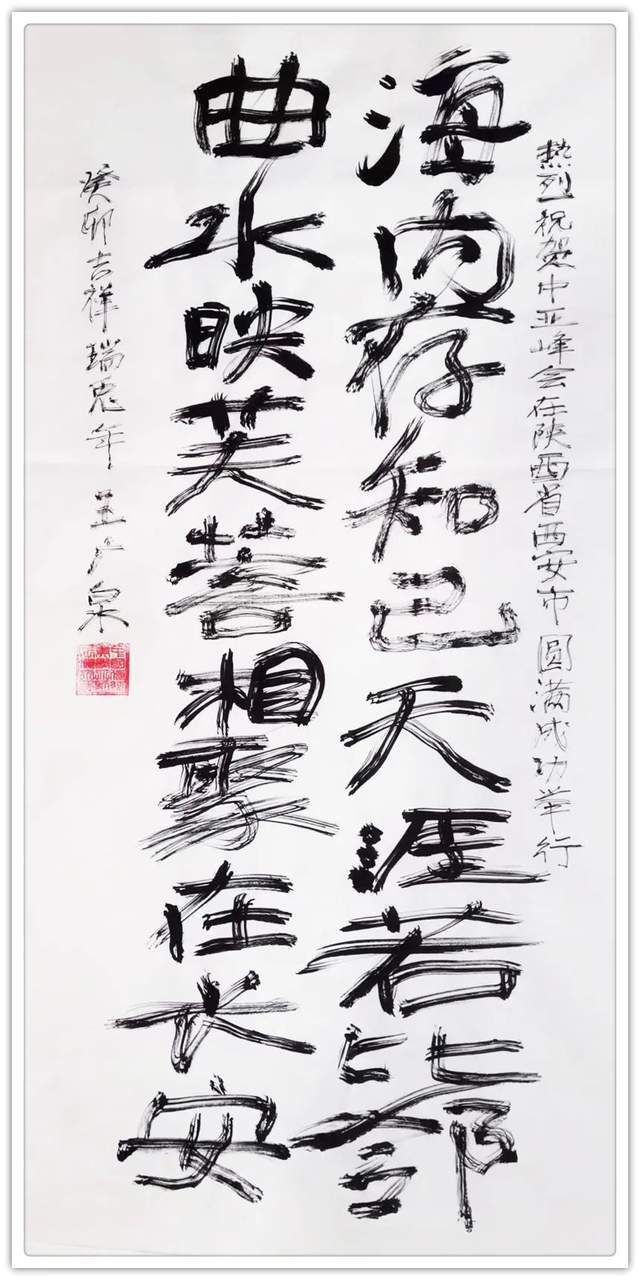 热烈祝贺中亚峰会在陕西省西安市圆满成功举行
海内存知己天涯若比邻
曲水映芙蓉相聚在长安
癸卯吉祥瑞兔年 王广泉